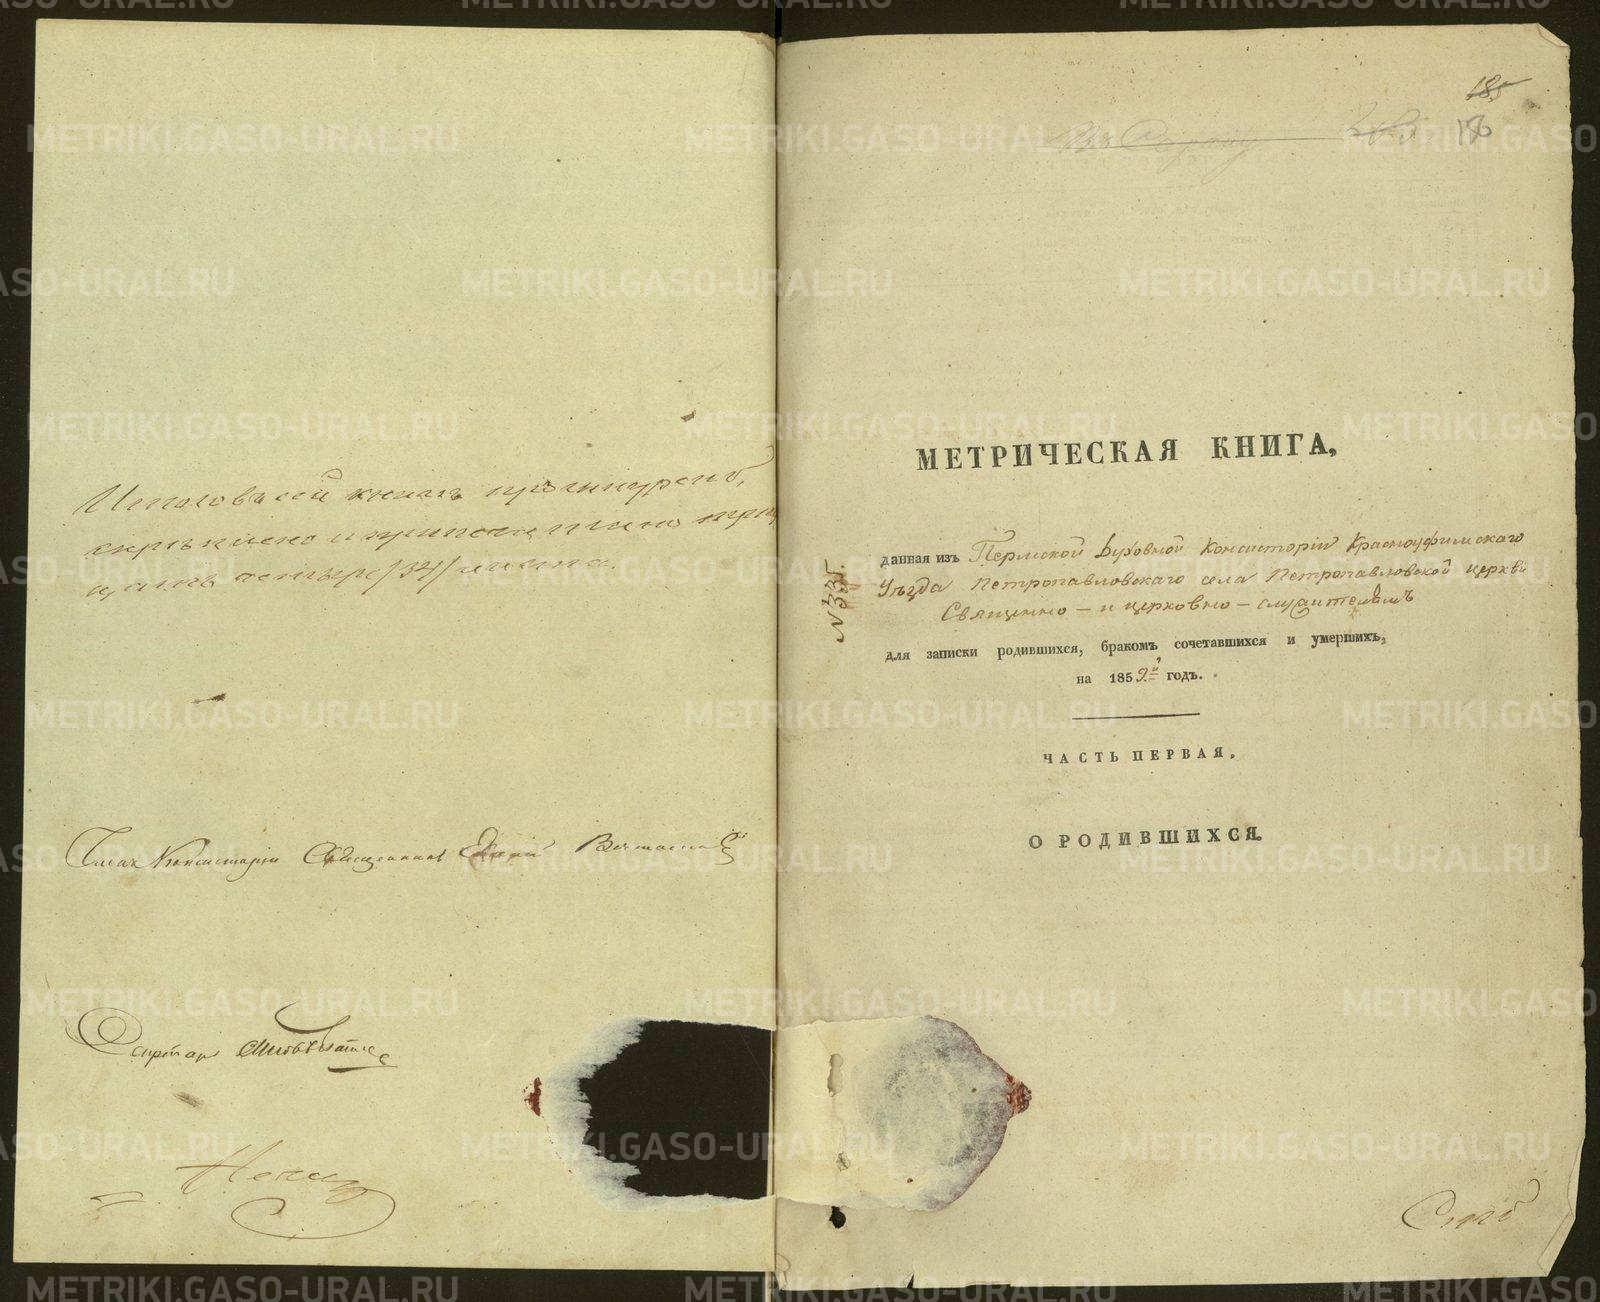 Итого въ сей книгѣ прошнурено,
скрѣплено и припечатано трид
цать четыре /34/ листа.
Членъ Консисторіи Священникъ
Секретарь
185
18
МЕТРИЧЕСКАЯ КНИГА,
данная изъ Пермской Духовной Консисторіи Красноуфимскаго
Уѣзда Петропавловскаго села Петропавловской церкви
Священно – и церковно – служителямъ
№ 335.
для записки родившихся, бракомъ сочетавшихся и умершихъ,
на 1859й годъ.
ЧАСТЬ ПЕРВАЯ,
О РОДИВШИХСЯ.
METRIKI.GASO-URAL.RU